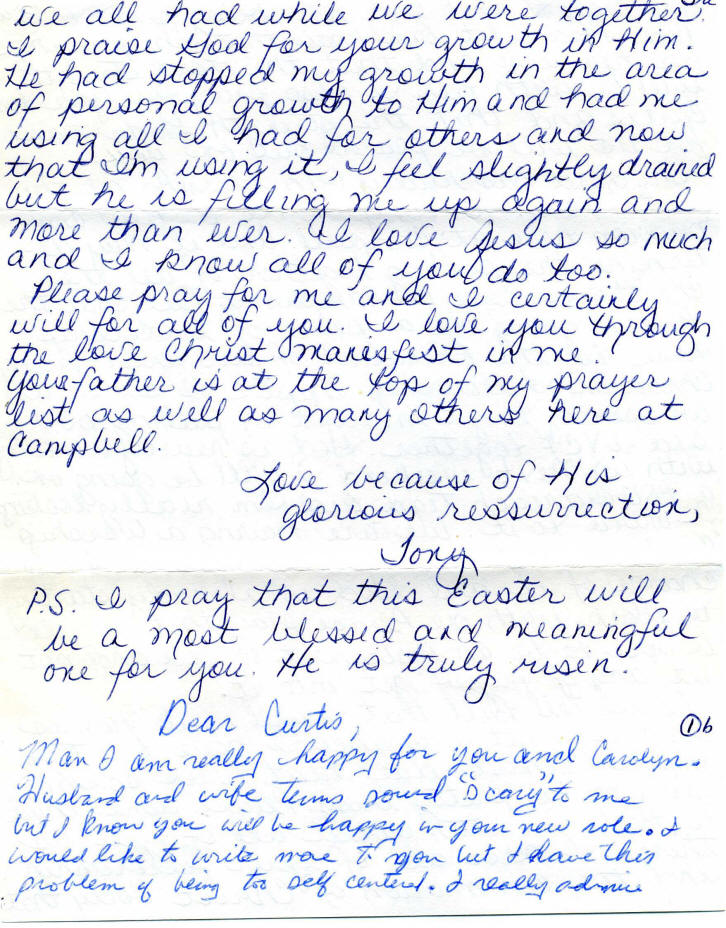 we all had while we were together.
I praise God for your growth in Him.
He had stopped my growth in the area
of personal growth to Him and had me
using all I had for others and now
that I'm using it, I feel slightly drained
but he is filling me up again and
more than ever. I love Jesus so much
and I know all of you do too.
Please pray for me and I certainly
will for all of you. I love you through
the love Christ manisfest in me.
Your father is at the top of my prayer
list as well as many others here at
Campbell.
Love because of His
glorious ressurrection,
Tony
P.S. I pray that this Easter will
be a most blessed and meaningful
one for you. He is truly risen.
Dear Curtis,
①b
Man I am really happy for you and Carolyn.
Husband and wife terms sound "Scary" to me
but I know you will be happy in your new role. I
would like to write more to you but I have this
problem of being too self centered. I really admire